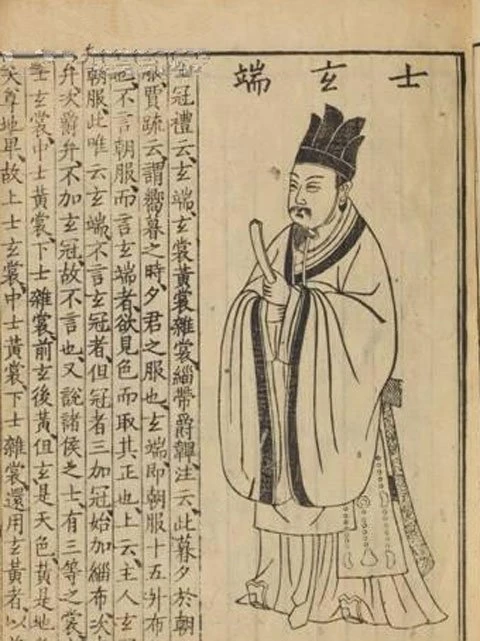 士玄端
士冠禮云玄端玄裳黄裳雜裳緇帶爵韠注云此暮夕於朝
服賈疏云謂嚮暮之時夕君之服也玄端即朝服十五升布
也不言朝服而言玄端者欲見色而取其正也上云主人玄
朝服此唯云玄端不言玄冠者但冠者三加冠始加緇布次
弁次爵弁不加玄冠故不言也又說諸侯之士有三等之裳
士玄裳中士黄裳下士雜裳前玄後黄但玄是天色黄是地
天尊地卑故上士玄裳中士黄裳下士雜裳還用玄黄者以